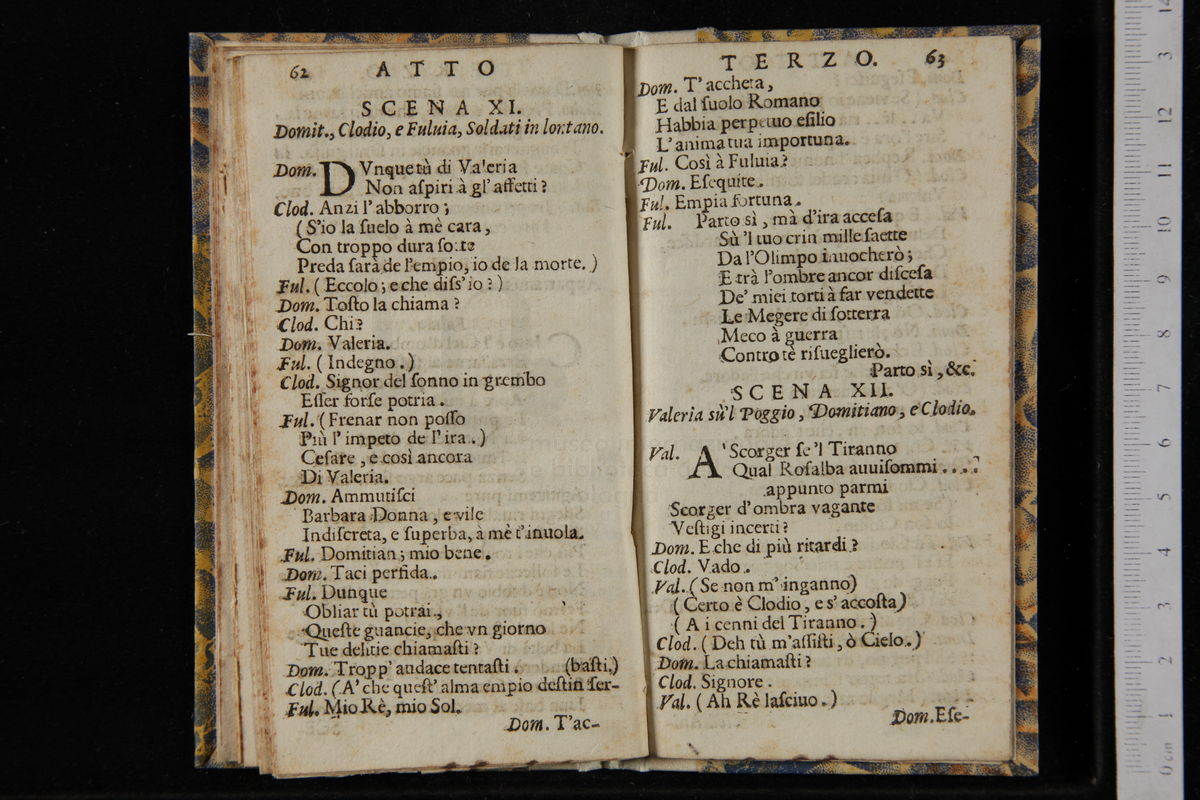 62 ATTO
SCENA XI.
Domit., Clodio, e Fuluia, Soldati in lontano.
Dom. DVnque tù di Valeria
Non aſpiri à gl' affetti?
Clod. Anzi l' abborro;
(S'io la ſuelo à mè cara,
Con troppo dura ſorte
Preda ſarà de l'empio, io de la morte.)
Ful. (Eccolo; e che diſs' io?)
Dom. Toſto la chiama?
Clod. Chi?
Dom. Valeria.
Ful. (Indegno.)
Clod. Signor del ſonno in grembo
Eſſer forſe potria.
Ful. (Frenar non poſſo
Più l' impeto de l' ira.)
Ceſare, e così ancora
Di Valeria.
Dom. Ammutiſci
Barbara Donna, e vile
Indiſcreta, e ſuperba, à mè t'inuola.
Ful. Domitian; mio bene.
Dom. Taci perfida.
Ful. Dunque
Obliar tù potrai,
Queſte guancie, che vn giorno
Tue delitie chiamaſti?
Dom. Tropp' audace tentaſti. (baſti.)
Clod. (A' che queſt' alma empio deſtin ſer-
Ful. Mio Rè, mio Sol.
Dom. T'ac-
TERZO. 63
Dom. T' accheta,
E dal ſuolo Romano
Habbia perpetuo eſilio
L' anima tua importuna.
Ful. Così à Fuluia?
Dom. Eſequite.
Ful. Empia fortuna.
Ful. Parto sì, mà d'ira acceſa
Sù 'l tuo crin mille ſaette
Da l'Olimpo inuocherò;
E trà l'ombre ancor diſceſa
De' miei torti à far vendette
Le Megere di ſotterra
Meco à guerra
Contro tè riſueglierò.
Parto sì, &c.
SCENA XII.
Valeria sù'l Poggio, Domitiano, e Clodio.
Val. A' Scorger ſe 'l Tiranno
Qual Roſalba auuiſommi....
appunto parmi
Scorger d' ombra vagante
Veſtigi incerti?
Dom. E che di più ritardi?
Clod. Vado.
Val. (Se non m' inganno)
(Certo è Clodio, e s' accoſta)
(A i cenni del Tiranno.)
Clod. (Deh tù m'aſſiſti, ò Cielo.)
Dom. La chiamaſti?
Clod. Signore.
Val. (Ah Rè laſciuo.)
Dom. Eſe-
0 cm 1 2 3 4 5 6 7 8 9 10 11 12 13 14